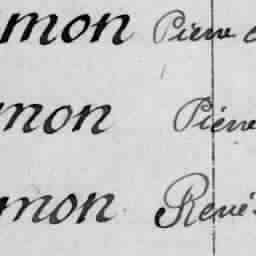 mon Pierre
mon Pierre
mon René